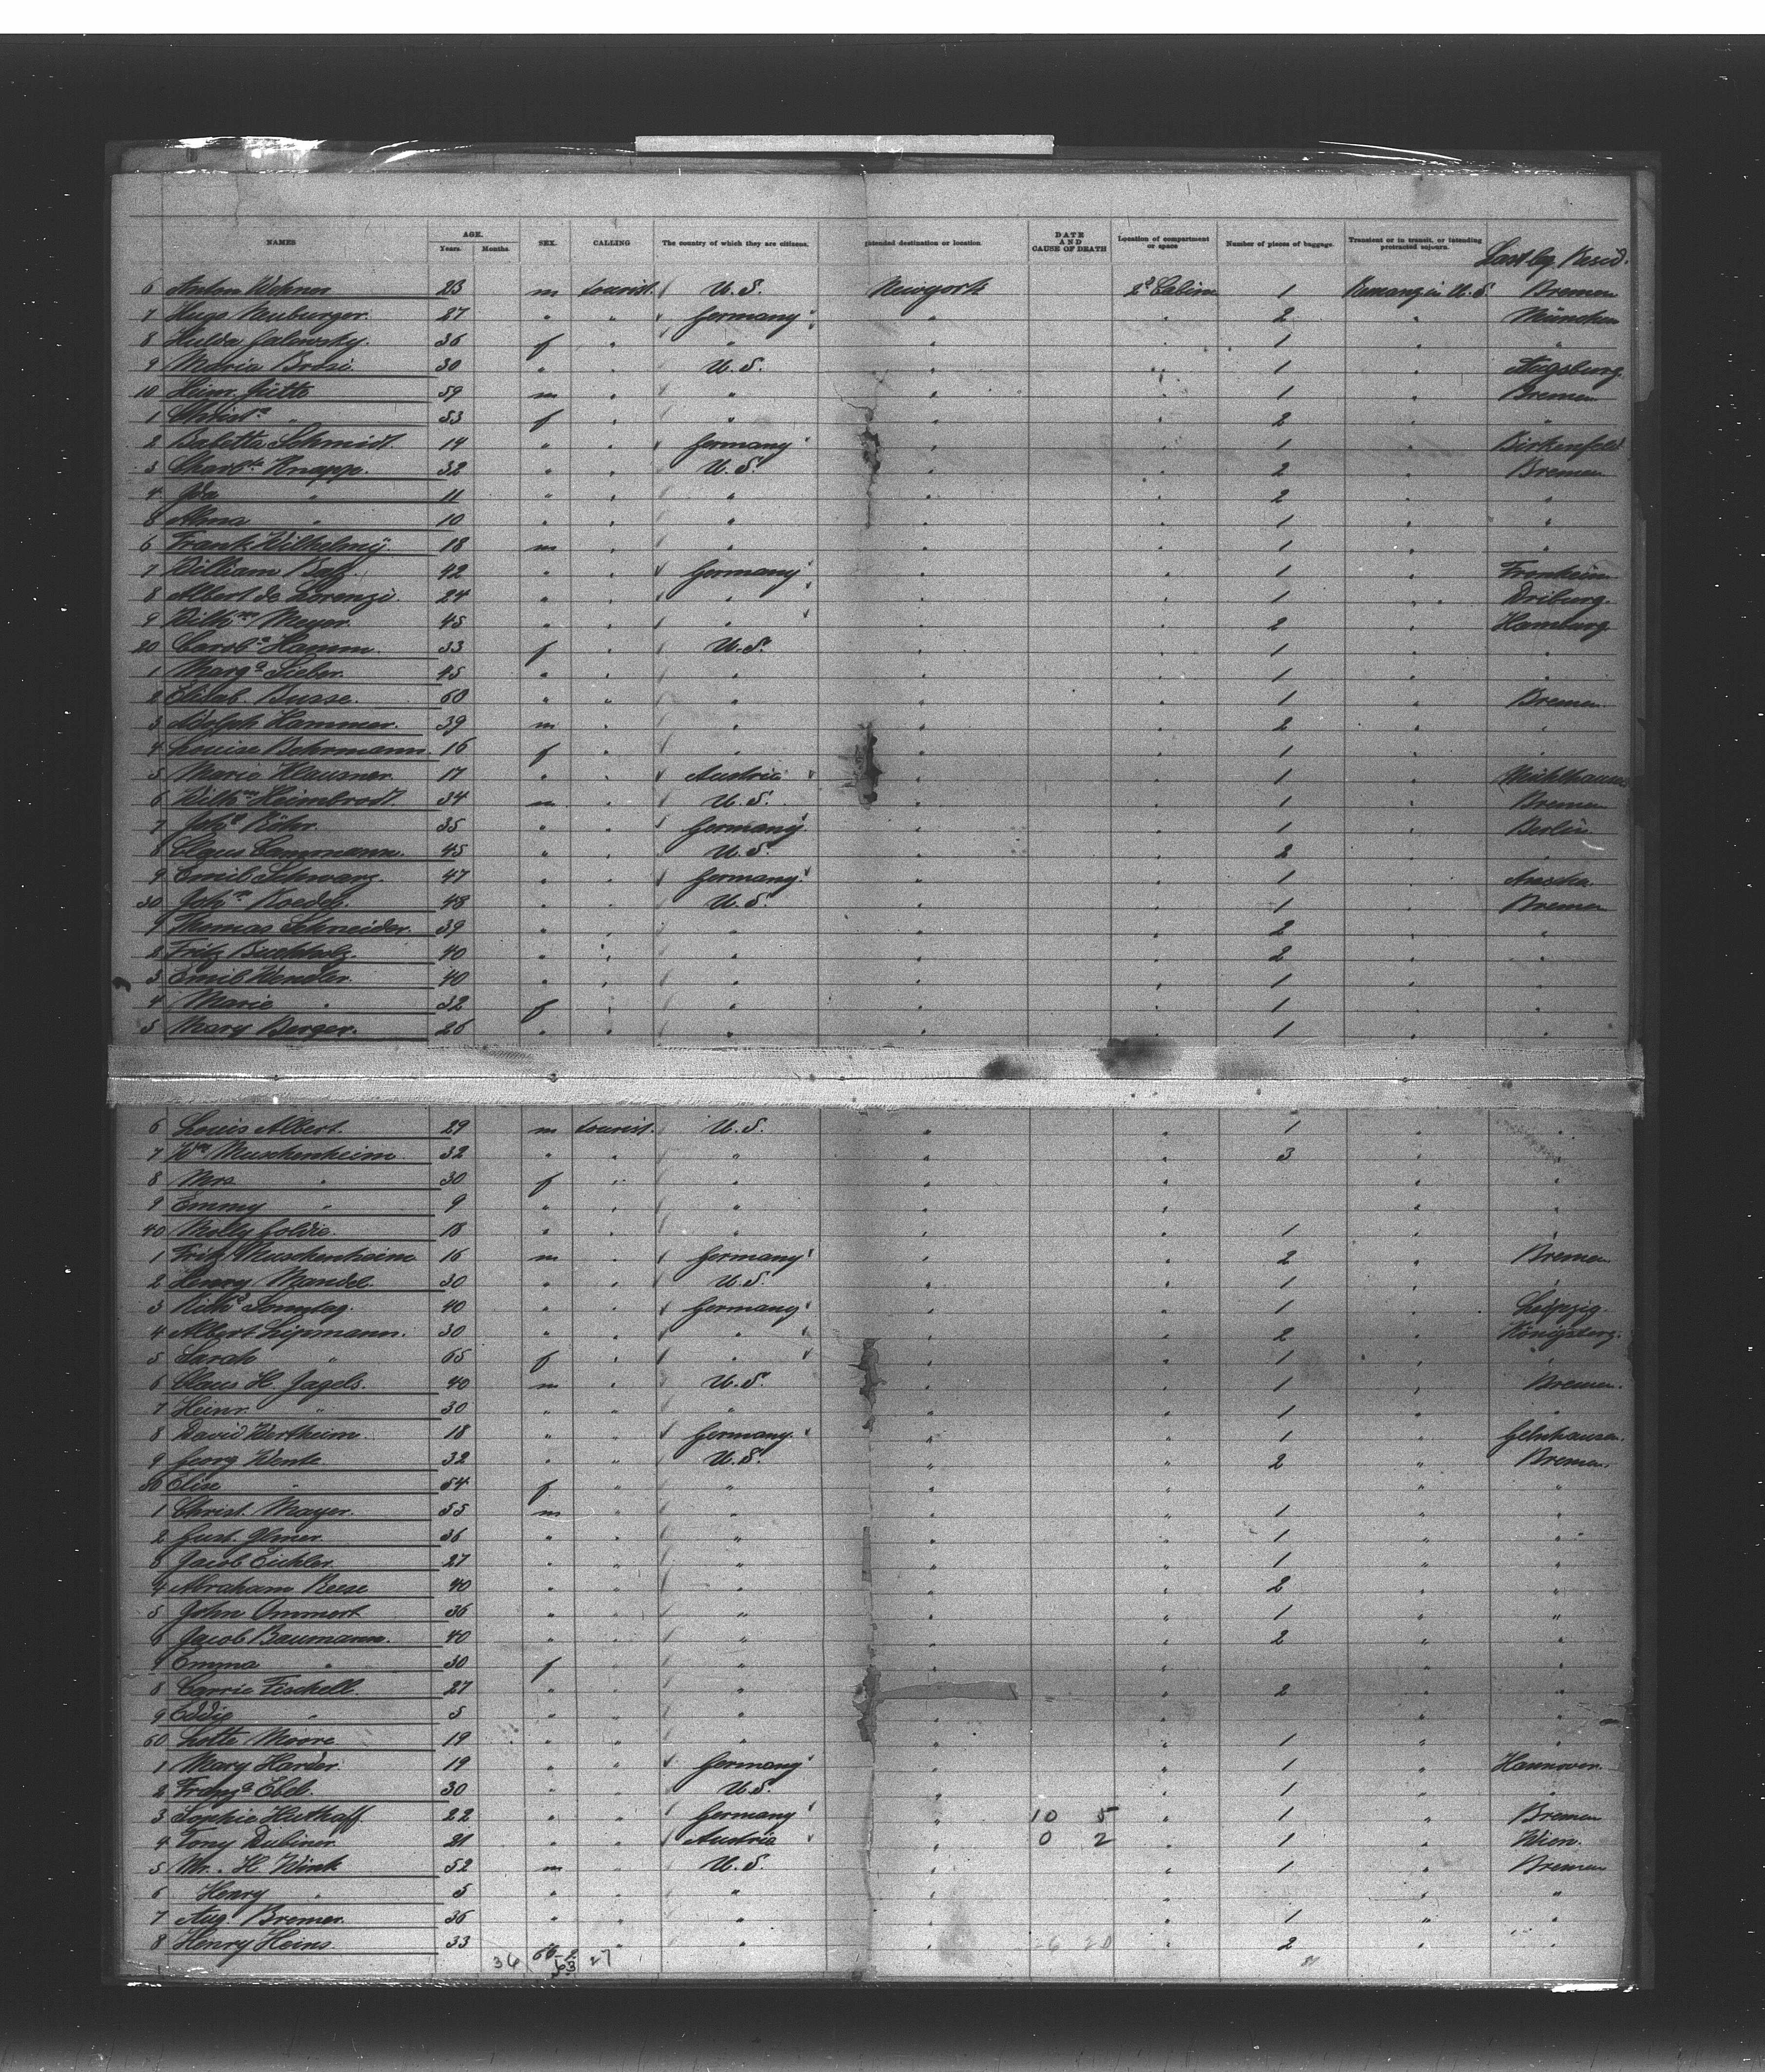 NAMES AGE. Years. Months. SEX. CALLING The country of which they are citizens. Intended destination or location. DATE AND CAUSE OF DEATH Location of compartment or space Number of pieces of baggage. Transient or in transit, or intending protracted sojourn. Last leg. Resid.
6 Anton Wehner 23 m tourist. U.S. Newyork 2d Cabin 1 in U.S. Bremen
7 Hugo Neuburger. 27 " " Germany " " 2 " München
8 Hulda Galewsky. 36 f " " " " 1 " "
9 Maria Brosi. 30 " " U.S. " " 1 " Augsburg
10 Heinr. Jütte 59 m " " " " 1 " Bremen
1 Christe " 53 f " " " " 2 " "
2 Babette Schmidt. 14 " " Germany " " 1 " Birkenfeld
3 Charltte Knappe. 32 " " U.S. " " 2 " Bremen
4 Ida " 11 " " " " " 2 " "
5 Alma " 10 " " " " " 1 " "
6 Frank Wilhelmÿ 18 m " " " " 1 " "
7 William Batz. 42 " " Germany " " 1 "
8 Albert de Lorenzi. 24 " " " " " 1 " Driburg.
9 Wilhm Meyer. 45 " " " " " 2 " Hamburg
20 Carole Hamm 33 f " U.S. " " 1 " "
1 Marge Sieber. 45 " " " " " 1 " "
2 Elisab. Busse. 60 " " " " " 1 " Bremen
3 Adolph Hammer. 39 m " " " " 2 " "
4 Louise Behrmann. 16 f " " " " 1 " "
5 Marie Klausner 17 " " Austria " " 1 " Mühlhausen
6 Wilhm Heimbrodt. 34 m " U.S. " " 1 " Bremen
7 Johs Röhr. 35 " " Germany " " 1 " Berlin
8 Claus Cammann. 45 " " U.S. " " 2 " "
9 Emil Schwarz. 47 " " Germany " " 1 "
30 Johs Roedel. 48 " " U.S. " " 1 " Bremen
1 Thomas Schneider. 39 " " " " " 2 " "
2 Fritz Buchholz. 40 " " " " " 2 " "
3 Emil Wendler. 40 " " " " " 1 " "
4 Marie " 32 f " " " " 1 " "
5 Mary Berger. 26 " " " " " 1 " "
6 Louis Albert. 29 m tourist. U.S. " " 1 " "
7 Wm Muschenheim 32 " " " " " 3 " "
8 Mrs " 30 f " " " " " "
9 Emmy " 9 " " " " " " "
40 Molly Goldie. 18 " " " " " 1 " "
1 Fritz Muschenheim 16 m " Germany " " 2 " Bremen
2 Henry Mandel. 30 " " U.S. " " 1 " "
3 Richd Sonntag. 40 " " Germany " " 1 " Leipzig.
4 Albert Lipmann. 30 " " " " " 2 " Königsberg.
5 Sarah " 65 f " " " " 1 " "
6 Claus H. Jagels. 40 m " U.S. " " 1 " Bremen.
7 Heinr. " 30 " " " " " 1 " "
8 David Wertheim. 18 " " Germany. " " 1 " Gelnhausen.
9 Georg Wente. 32 " " U.S. " " 2 " Bremen.
50 Elise " 54 f " " " " " "
1 Christ. Mayer. 55 m " " " " 1 " "
2 Gust. Ilmer. 36 " " " " " 1 " "
3 Jacob Eichler. 27 " " " " " 1 " "
4 Abraham Reese 40 " " " " " 2 " "
5 John Ommert 36 " " " " " 1 " "
6 Jacob Baumann. 40 " " " " " 2 " "
7 Emma " 30 f " " " " " "
8 Carrie Fischell. 27 " " " " 2 " "
9 Eddie " 5 " " " " " " "
60 Lotte Moore 19 " " " " " 1 " "
1 Mary Harder. 19 " " Germany " " 1 " Hannover.
2 Franza Ebel. 30 " " U.S. " " 1 " "
3 Sophie Huthoff 22 " " Germany " 10 5 " 1 " Bremen
4 Tony Dubiner. 21 " " Austria " 0 2 " 1 " Wien.
5 Mr. H. Wink 52 m " U.S. " " 1 " Bremen
6 Henry " 5 " " " " " " "
7 Aug. Bremer. 36 " " " " " 1 " "
8 Henry Heins. 33 " " " 26 20 " 2 " "
36 63 27